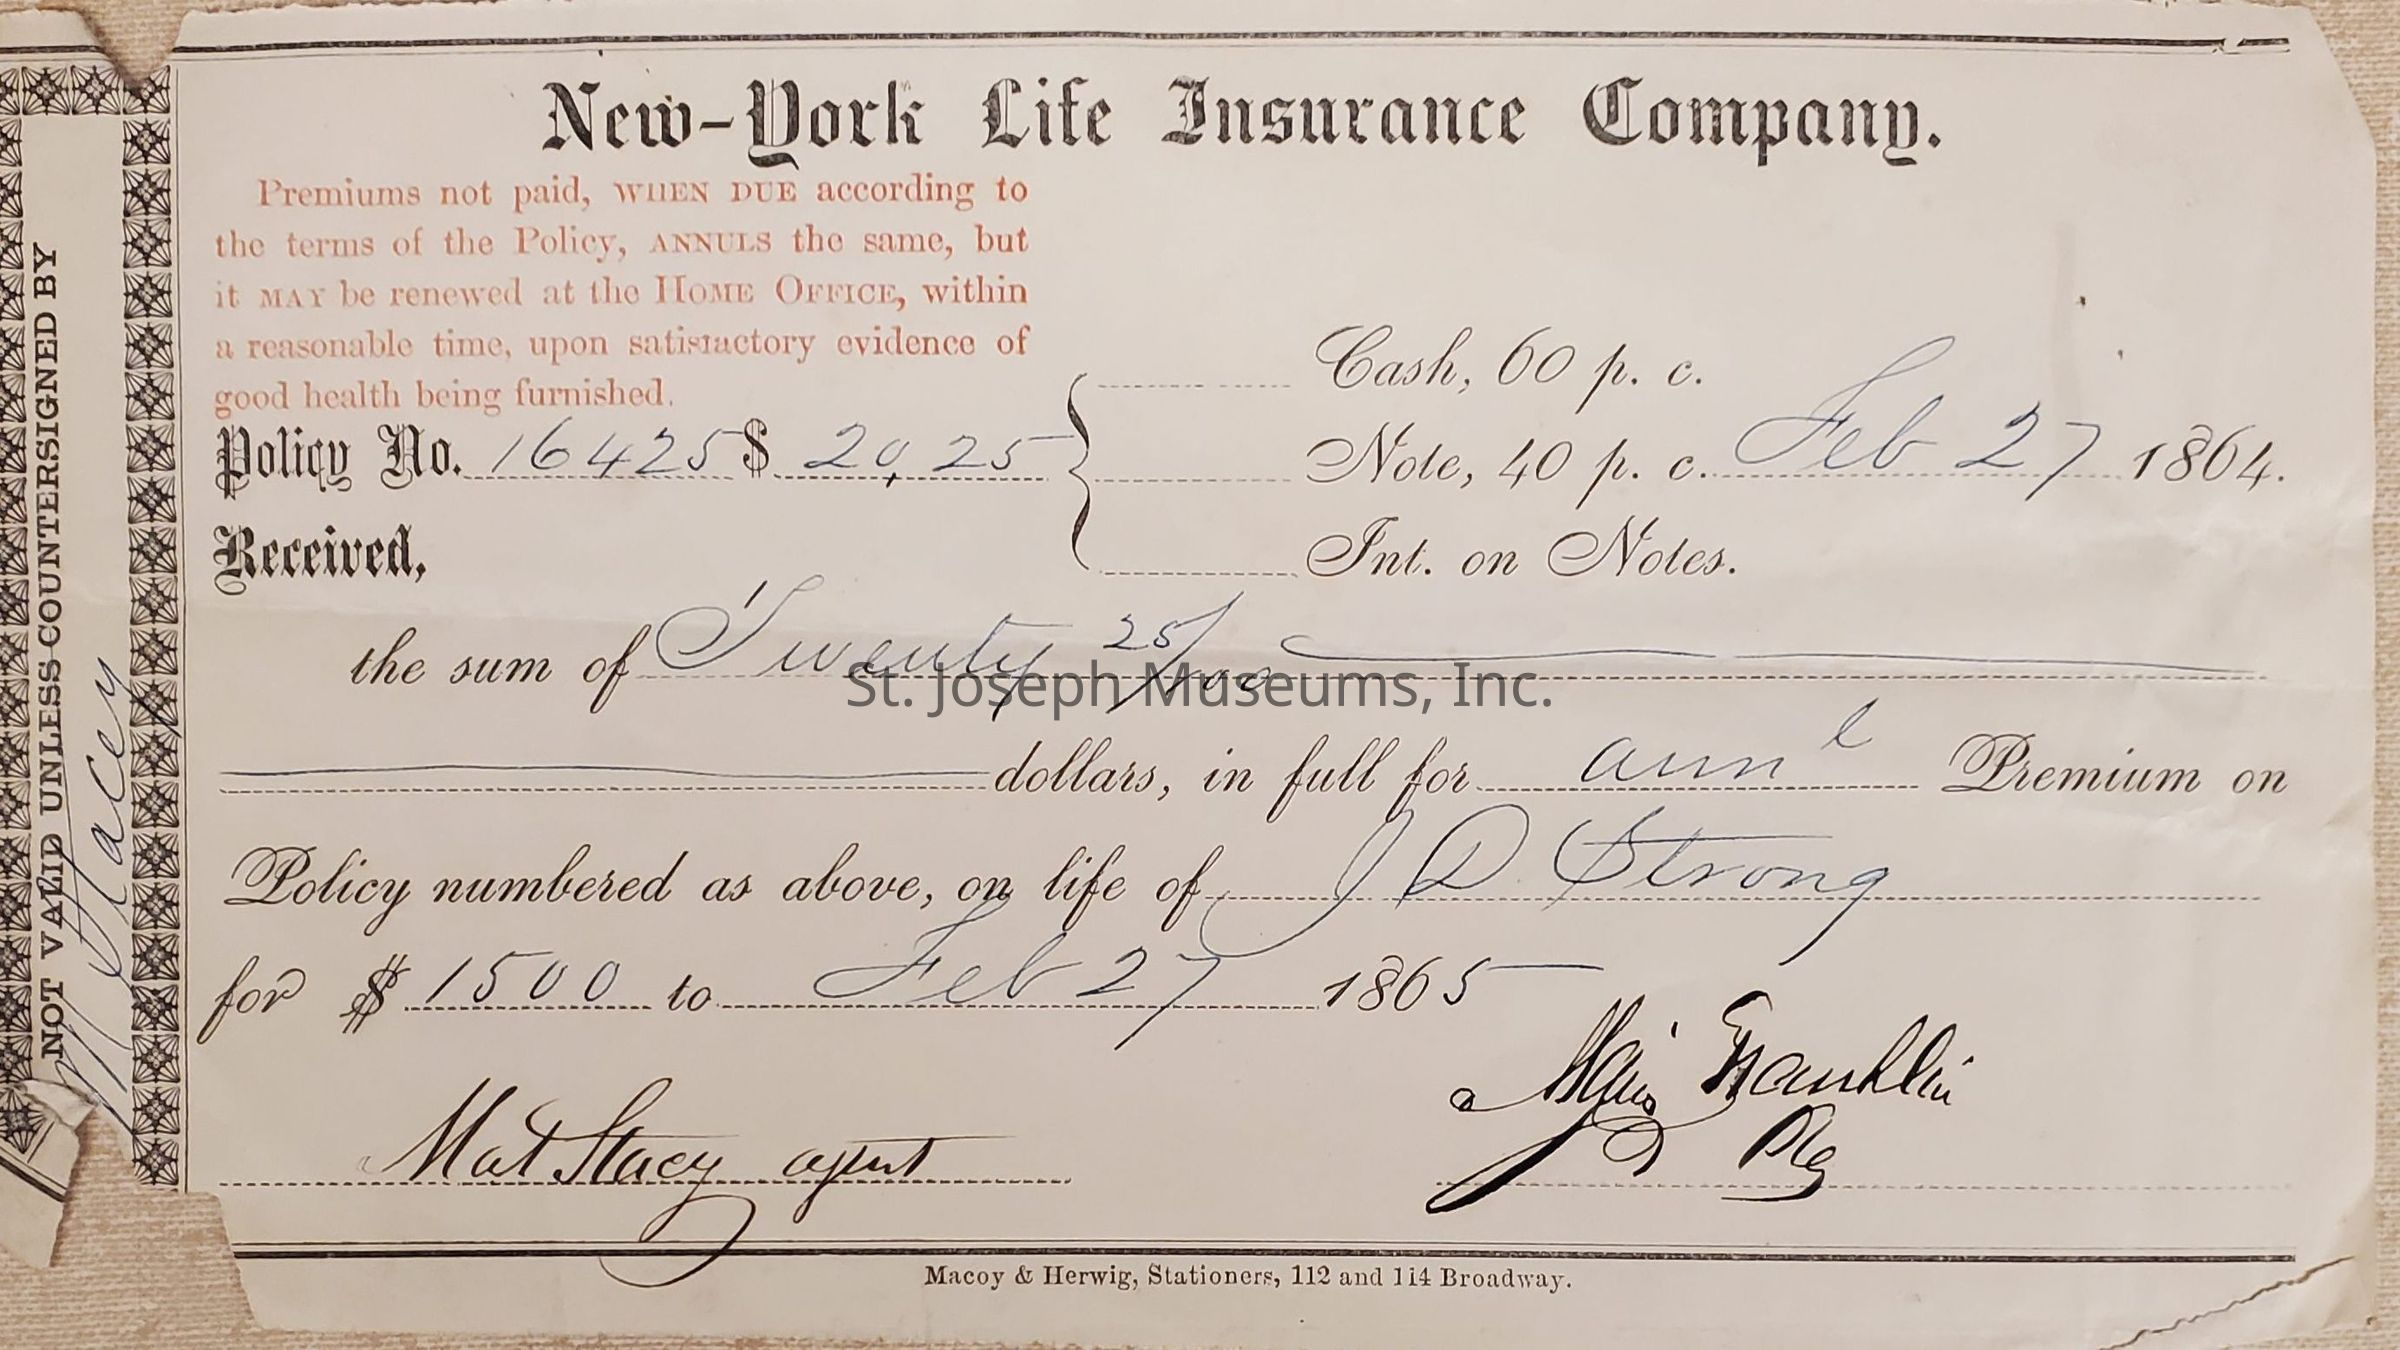 New-York Life Insurance Company.
Premiums not paid, WHEN DUE according to
the terms of the Policy, ANNULS the same, but
it MAY be renewed at the HOME OFFICE, within
a reasonable time, upon satisfactory evidence of
good health being furnished.
Cash, 60 p. c.
Policy No. 16425 $ 20,25 Note, 40 p. c. Feb 27 1864.
Received, Int. on Notes.
the sum of Twenty 25/100
dollars, in full for ann l Premium on
Policy numbered as above, on life of J D. Strong
for $ 1500 to Feb 27 1865
Mat Stacy agent Morris Franklin
NOT VALID UNLESS COUNTERSIGNED BY
M Stacey
Macoy & Herwig, Stationers, 112 and 114 Broadway.
St. Joseph Museums, Inc.